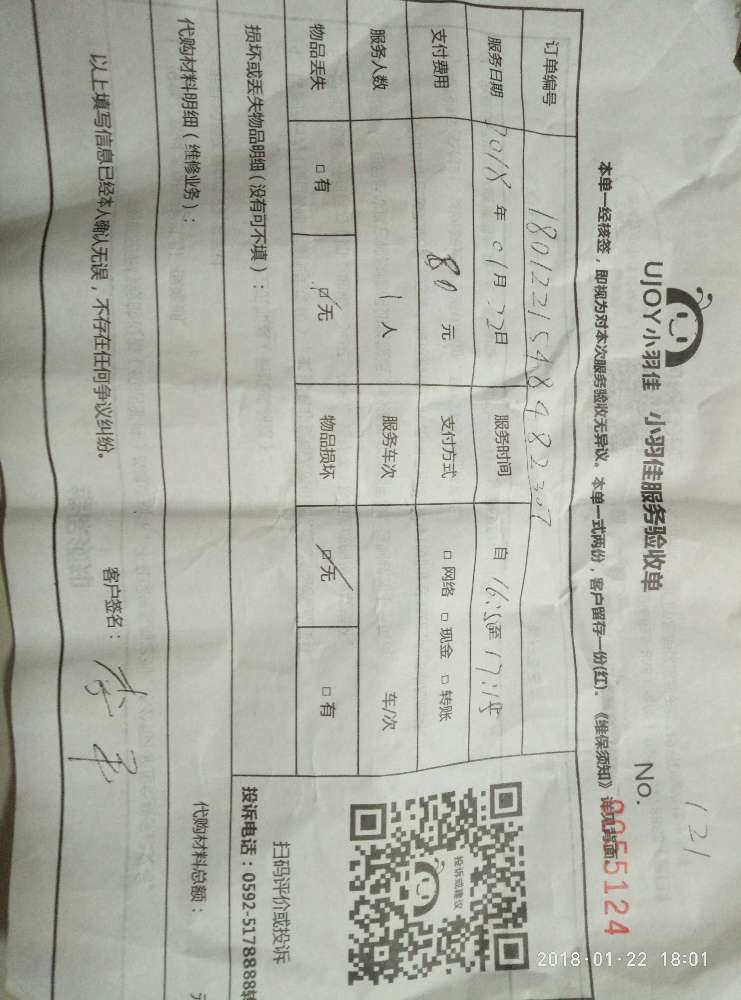 121
UJOY小羽佳 小羽佳服务验收单 No. 0055124
本单一经核签，即视为对本次服务验收无异议。本单一式两份，客户留存一份(红)。《维保须知》详见背面
订单编号 1801221548482307
服务日期 2018年01月22日 服务时间 自16:50至17:15
支付费用 80元 支付方式 □网络 □现金 □转账
服务人数 1人 服务车次 车/次
物品丢失 □有 ☑无 物品损坏 ☑无 □有
损坏或丢失物品明细（没有可不填）：
投诉或建议
扫码评价或投诉
投诉电话：0592-5178888转
代购材料明细（维修业务）： 代购材料总额：
以上填写信息已经本人确认无误，不存在任何争议纠纷。 客户签名：
2018-01-22 18:01